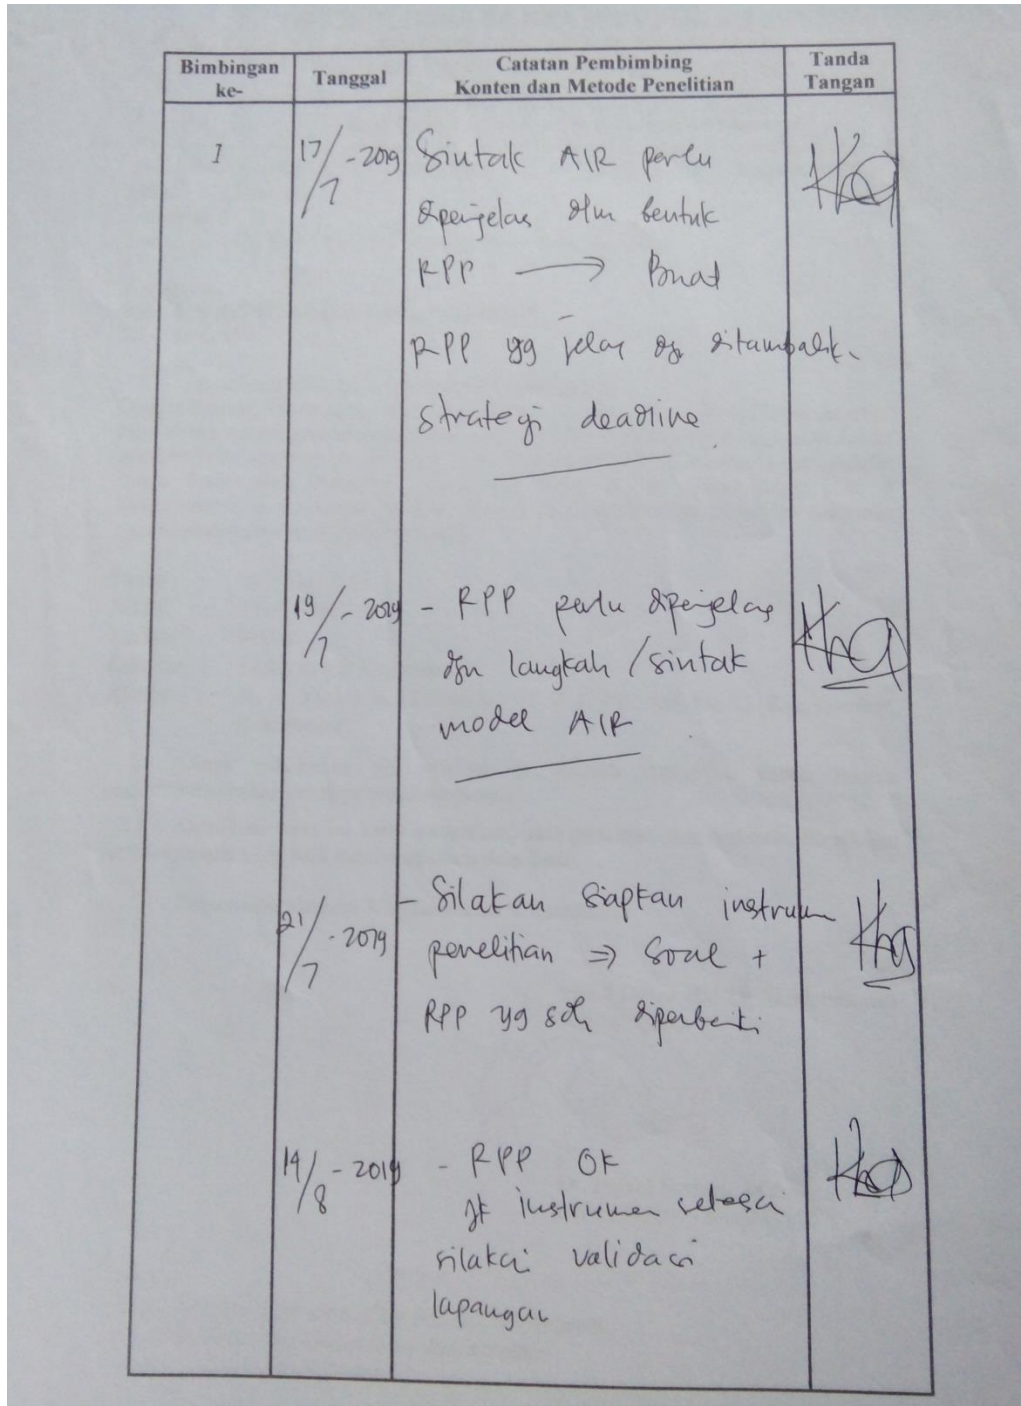 Bimbingan ke-
Tanggal
Catatan Pembimbing
Konten dan Metode Penelitian
Tanda Tangan
1
17/7 - 2019
Sintak AIR perlu
diperjelas dlm bentuk
RPP → Buat
RPP yg jelas dg ditambahk
strategi deadline
19/7 - 2019
- RPP perlu diperjelas
dgn langkah / sintak
model AIR
21/7 - 2019
- Silakan siapkan instrumen
penelitian ⇒ Soal +
RPP yg sdh diperbaiki
14/8 - 2019
- RPP OK
jk instrumen selesai
silakan validasi
lapangan